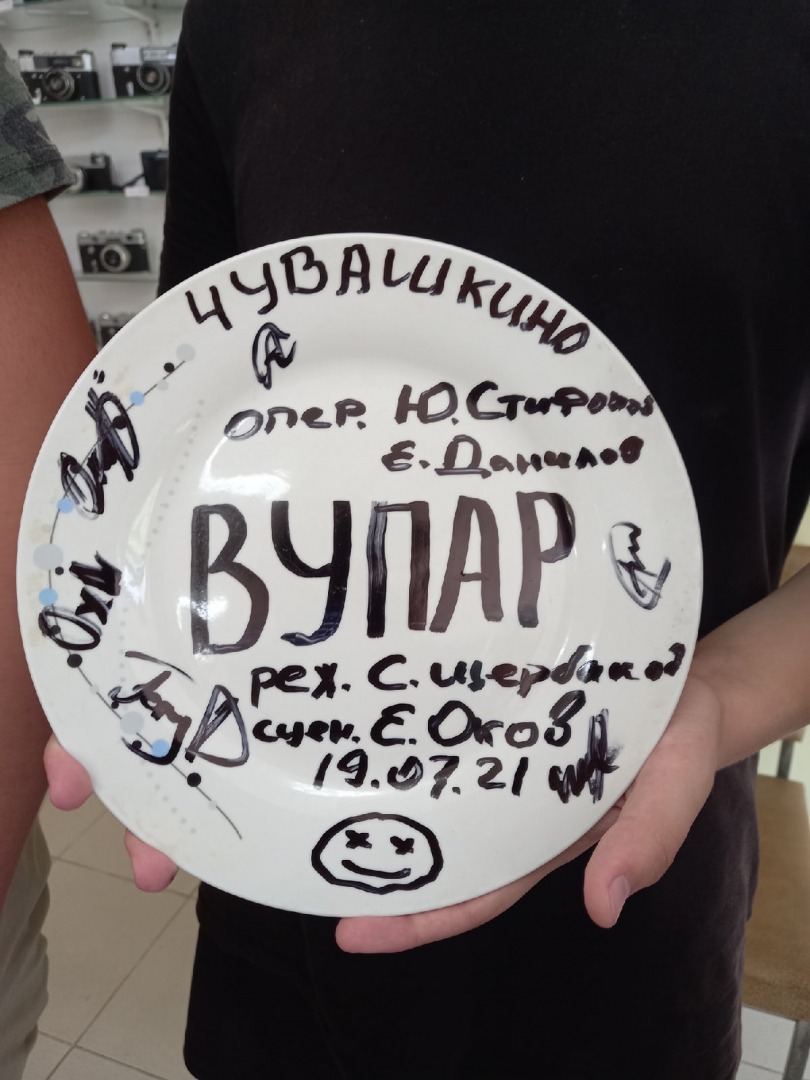 ЧУВАШКИНО
опер. Ю. Стифонов
Е. Данилов
ВУПАР
реж. С. Щербаков
сцен. Е. Оков
19.07.21